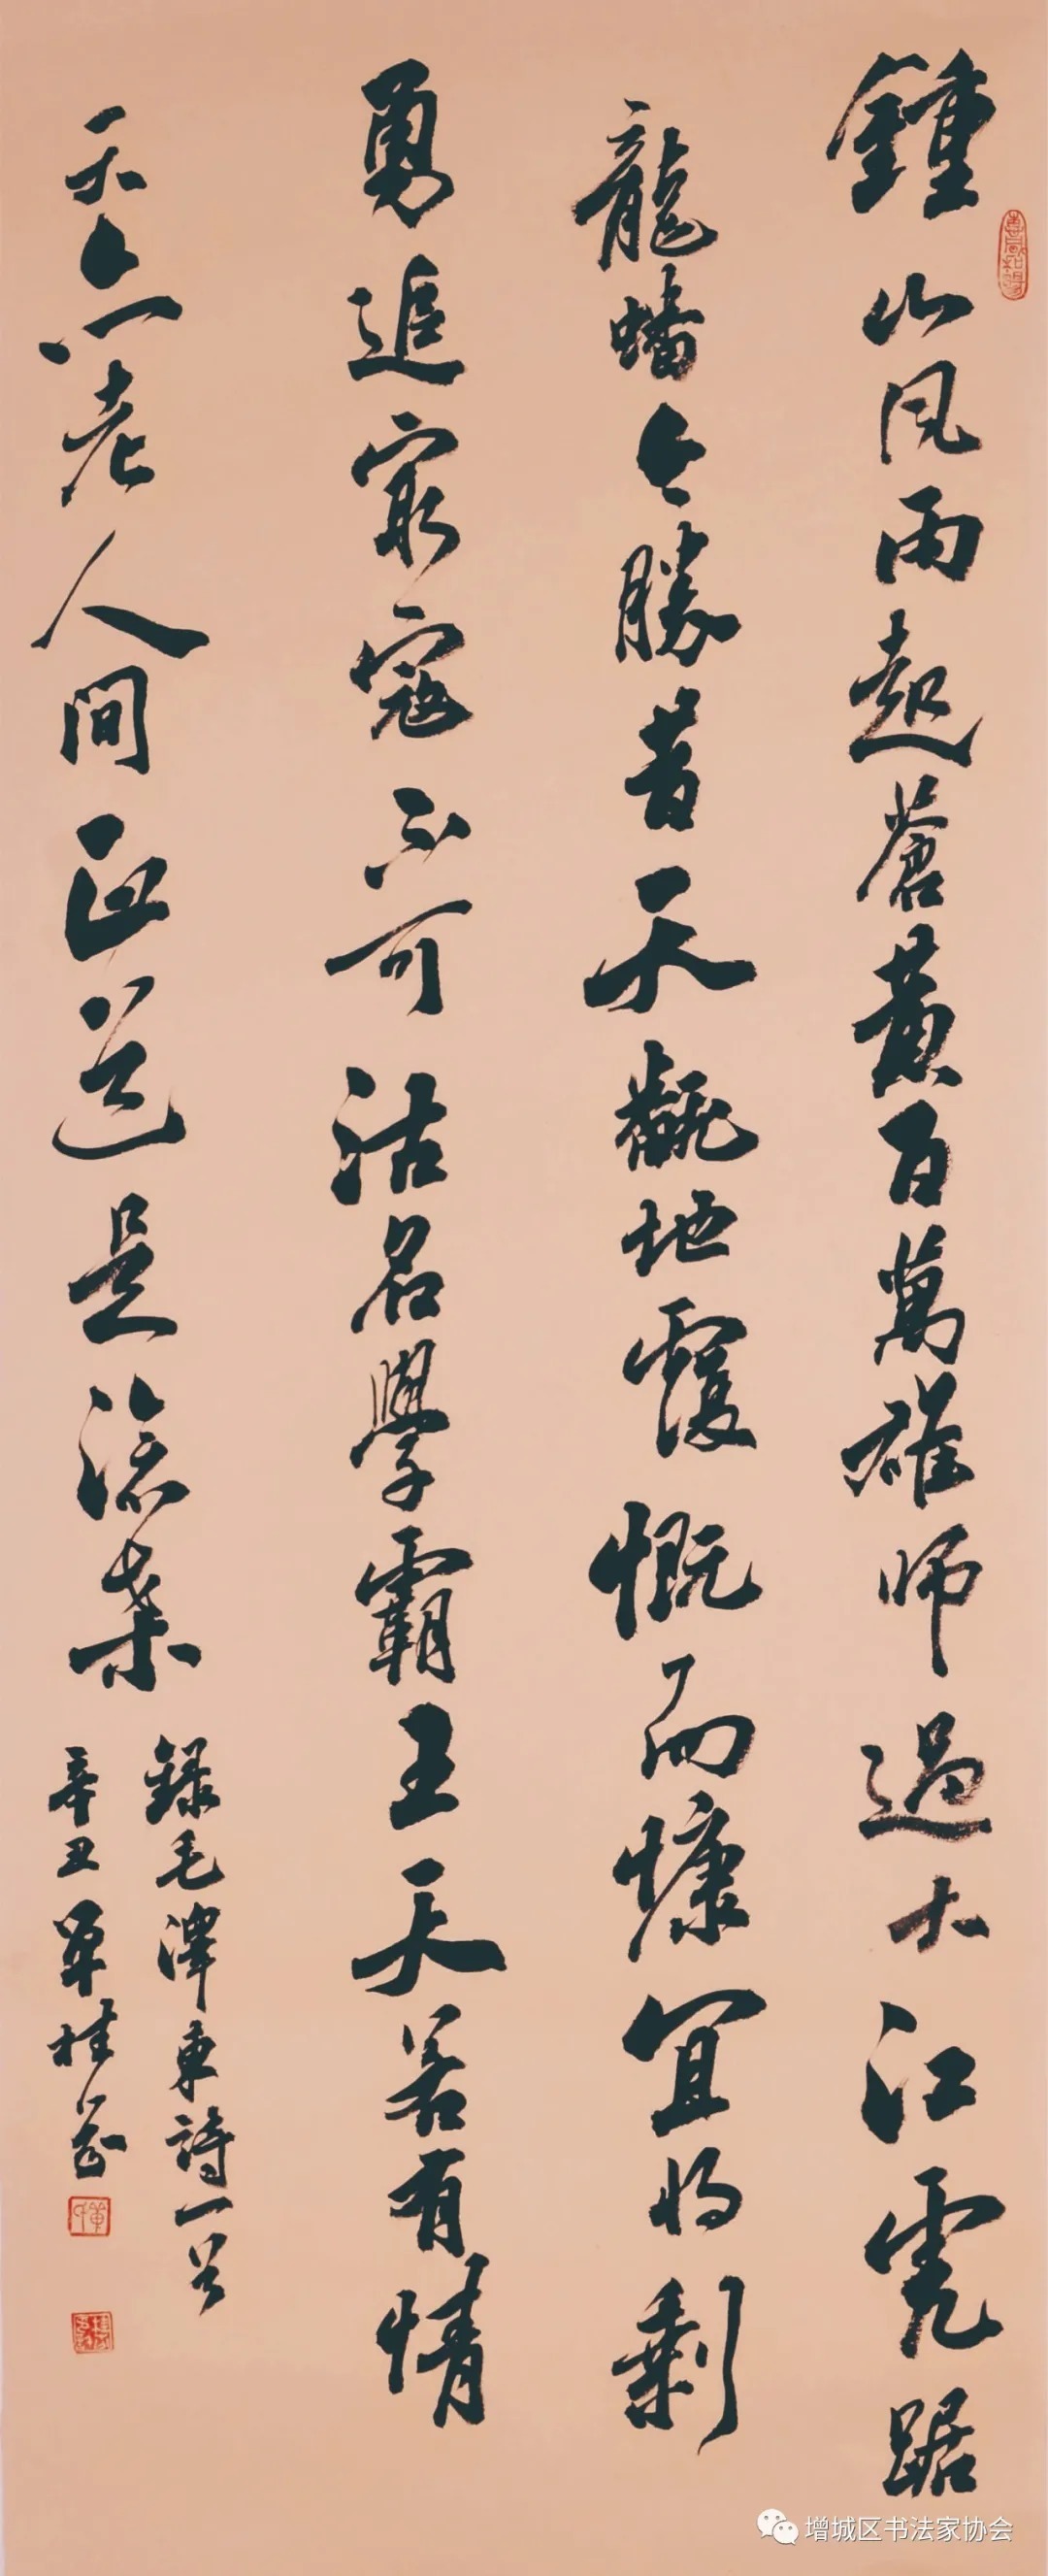 鍾山风雨起蒼黄百萬雄师過大江虎踞
龍蟠今勝昔天翻地覆慨而慷宜将剩
勇追窮寇不可沽名學霸王天若有情
天亦老人间正道是滄桑
録毛澤東詩一首
辛丑單桂
增城区书法家协会